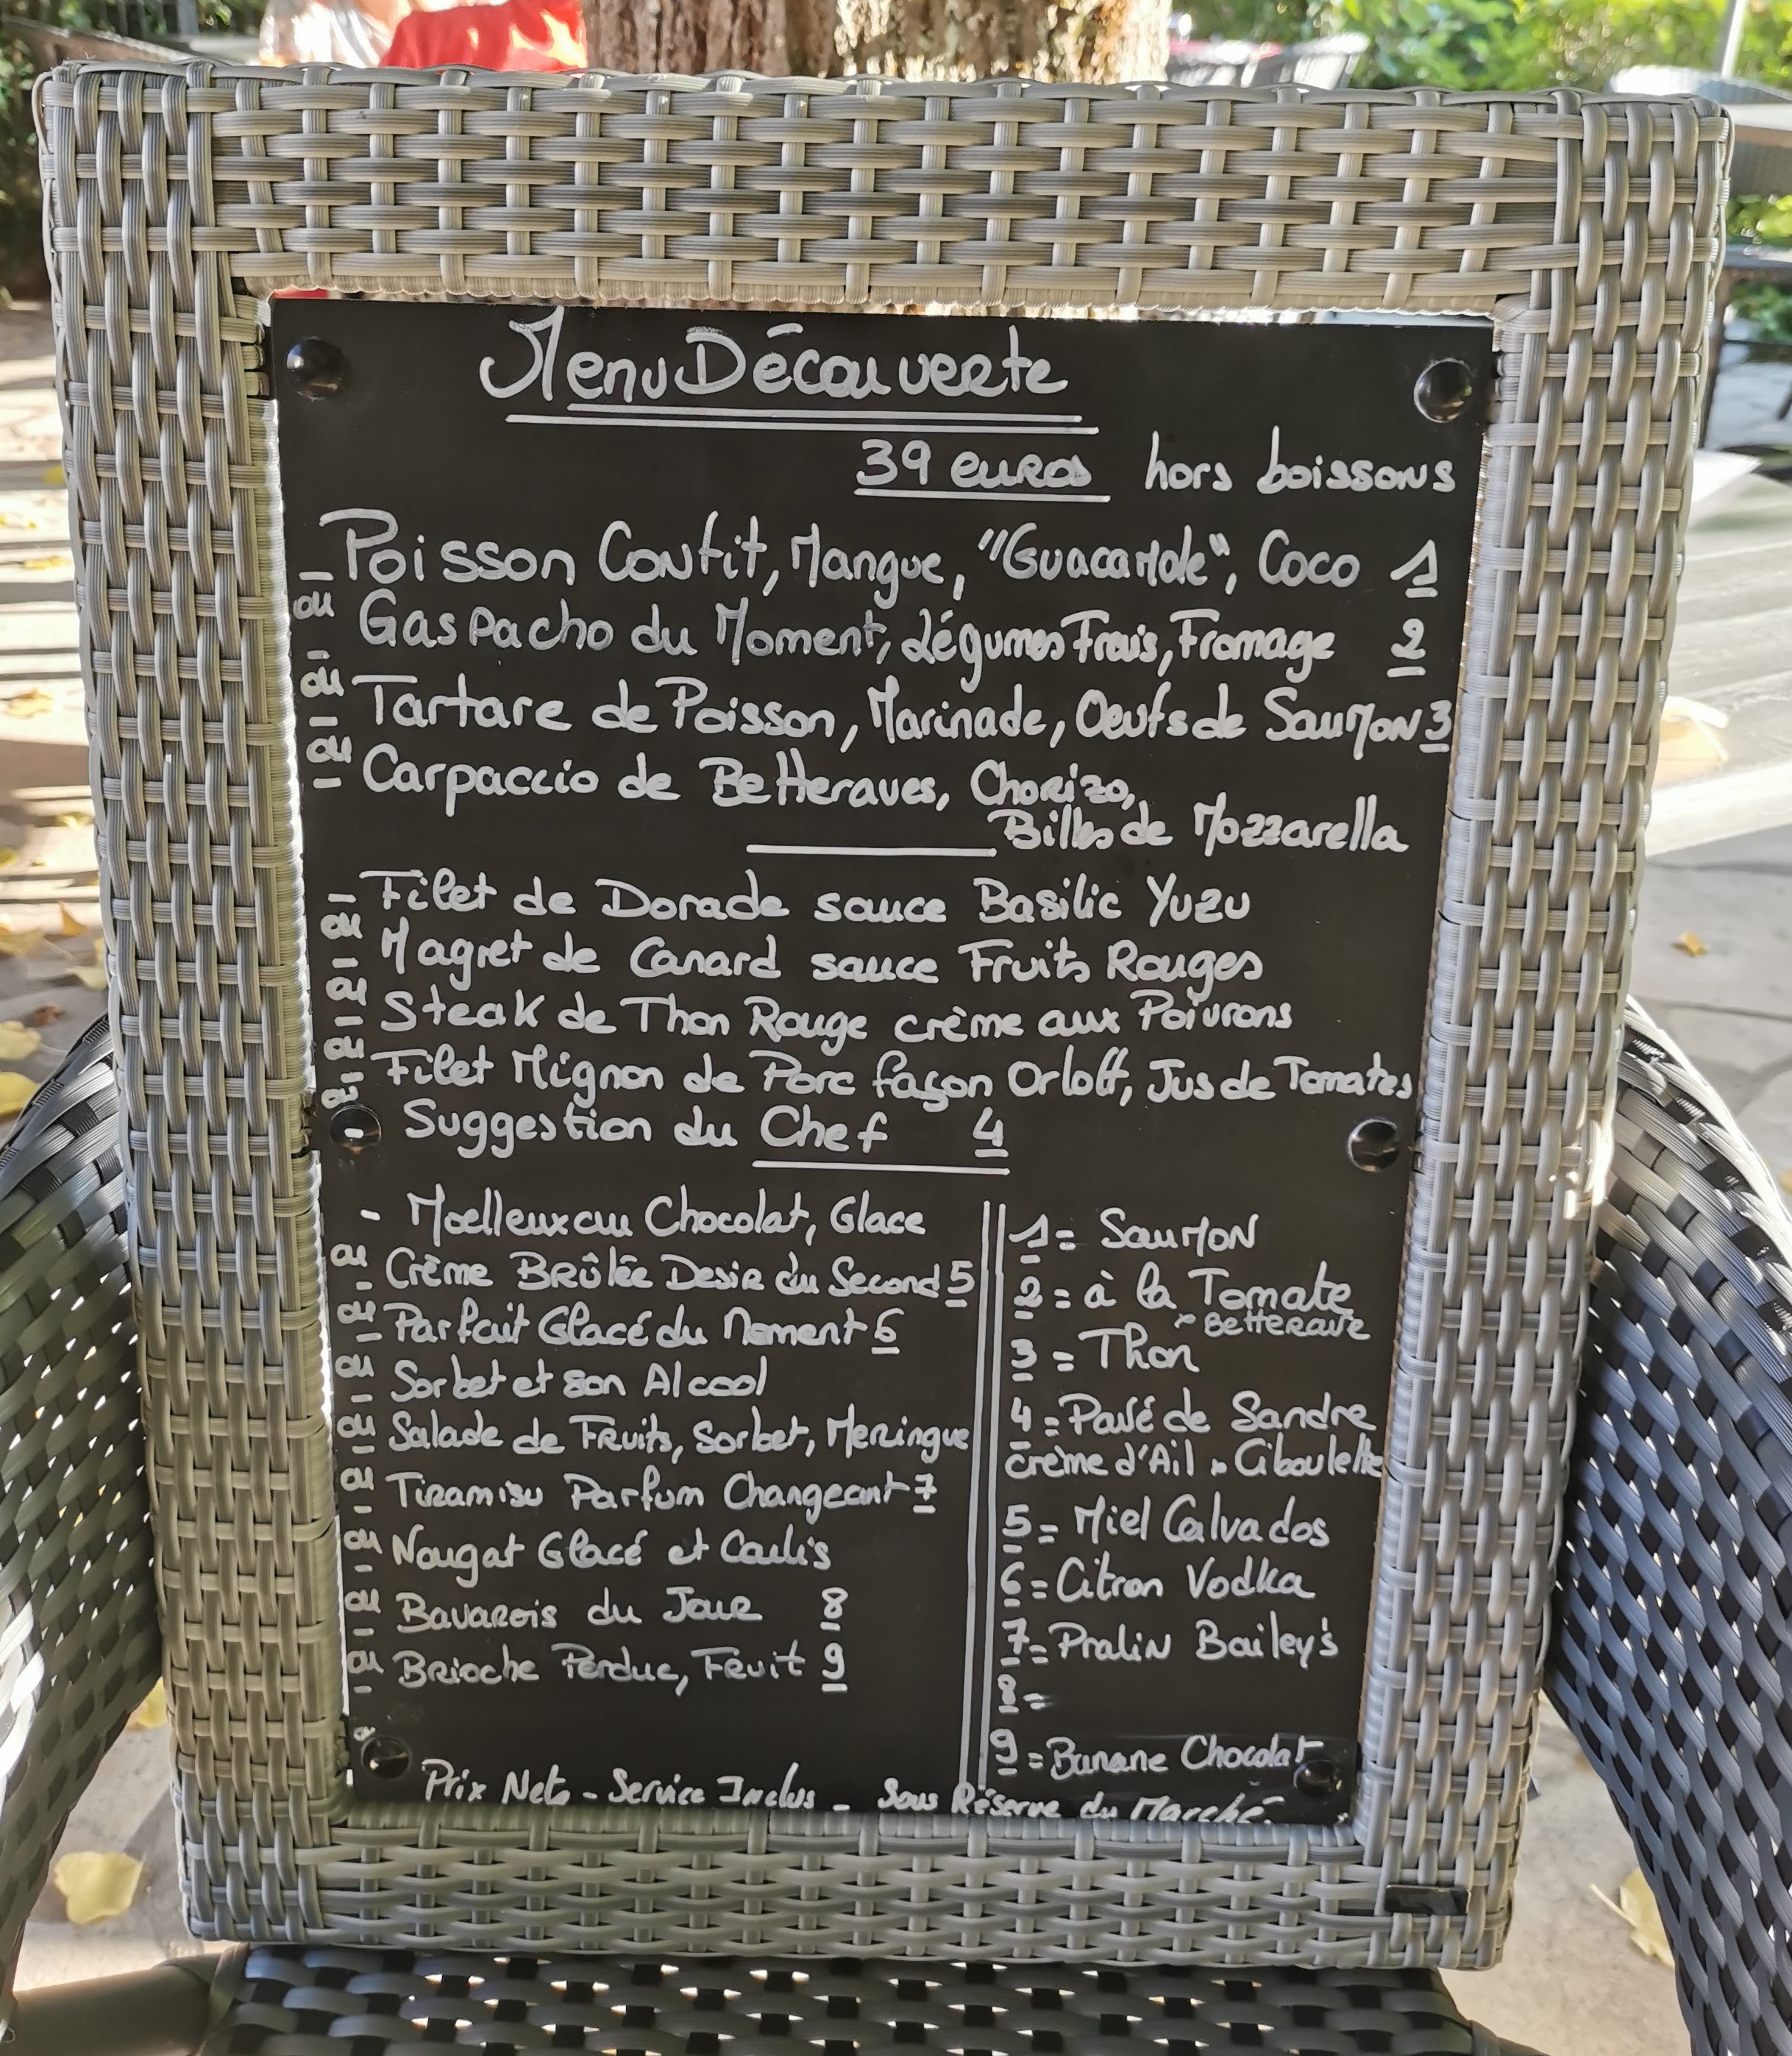 Menu Découverte
39 euros hors boissons
- Poisson Confit, Mangue, "Guacamole", Coco 1
ou
- Gaspacho du Moment, Légumes Frais, Fromage 2
ou
- Tartare de Poisson, Marinade, Oeufs de Saumon 3
ou
- Carpaccio de Betteraves, Chorizo,
Billes de Mozzarella
- Filet de Dorade sauce Basilic Yuzu
ou
- Magret de Canard sauce Fruits Rouges
ou
- Steak de Thon Rouge crème aux Poivrons
ou
- Filet Mignon de Porc façon Orloff, Jus de Tomates
ou
- Suggestion du Chef 4
- Moelleux au Chocolat, Glace
ou
- Crème Brûlée Desir du Second 5
ou
- Parfait Glacé du Moment 6
ou
- Sorbet et son Alcool
ou
- Salade de Fruits, Sorbet, Meringue
ou
- Tiramisu Parfum Changeant 7
ou
- Nougat Glacé et Coulis
ou
- Bavarois du Jour 8
ou
- Brioche Perdue, Fruit 9
1 = Saumon
2 = à la Tomate
Betterave
3 = Thon
4 = Pavé de Sandre
crème d'Ail Ciboulette
5 = Miel Calvados
6 = Citron Vodka
7 = Pralin Bailey's
8 =
9 = Banane Chocolat
Prix Nets - Service Inclus - Sous Réserve du Marché.